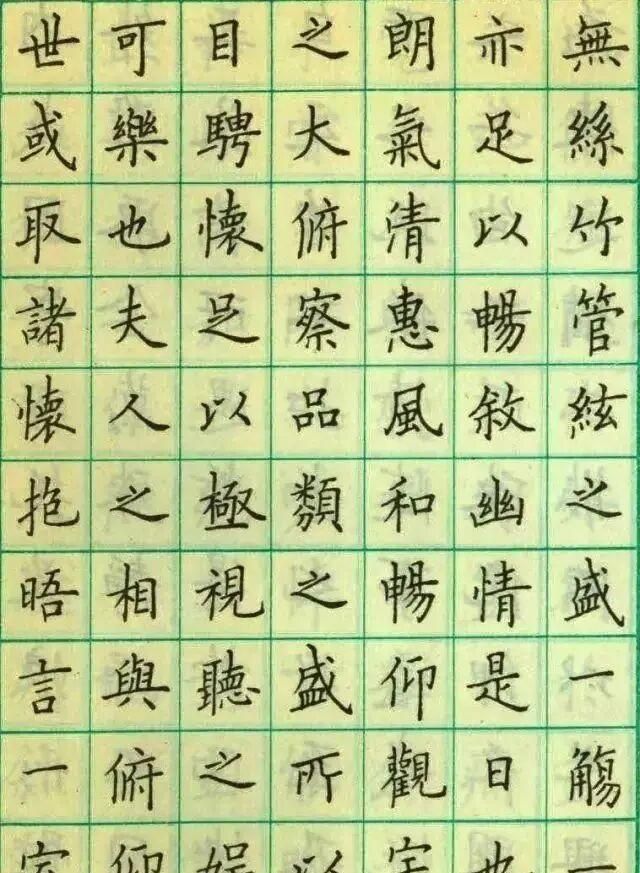 無絲竹管絃之盛一觴一
亦足以暢敘幽情是日也
朗氣清惠風和暢仰觀宇
之大俯察品類之盛所以
目騁懷足以極視聽之娛
可樂也夫人之相與俯仰
世或取諸懷抱晤言一室